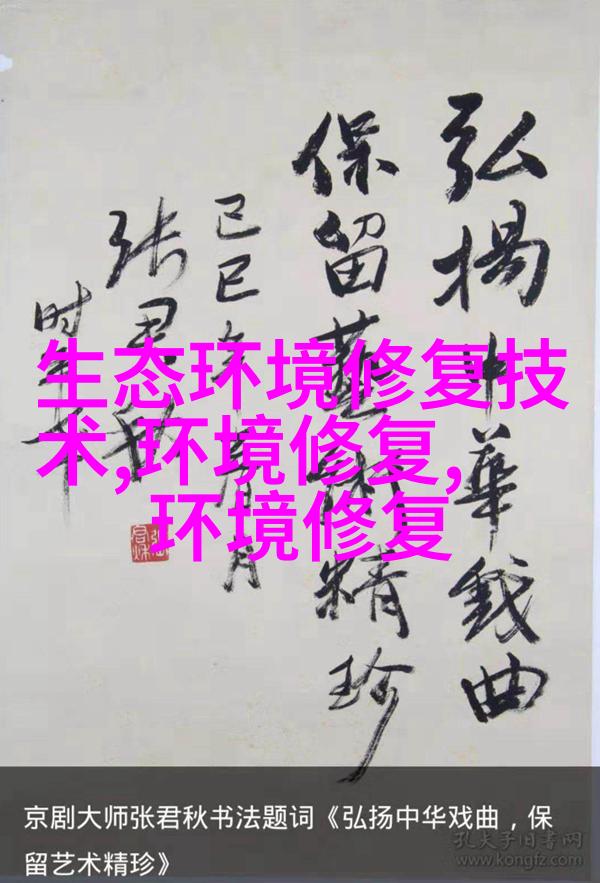 弘揚中華戲曲
保留藝術精珍
己巳年月
张君秋
时年
生态环境修复技
术,环境修复,
环境修复
京剧大师张君秋书法题词《弘扬中华戏曲，保
留艺术精珍》
孔夫子旧书网
www.kongfz.com